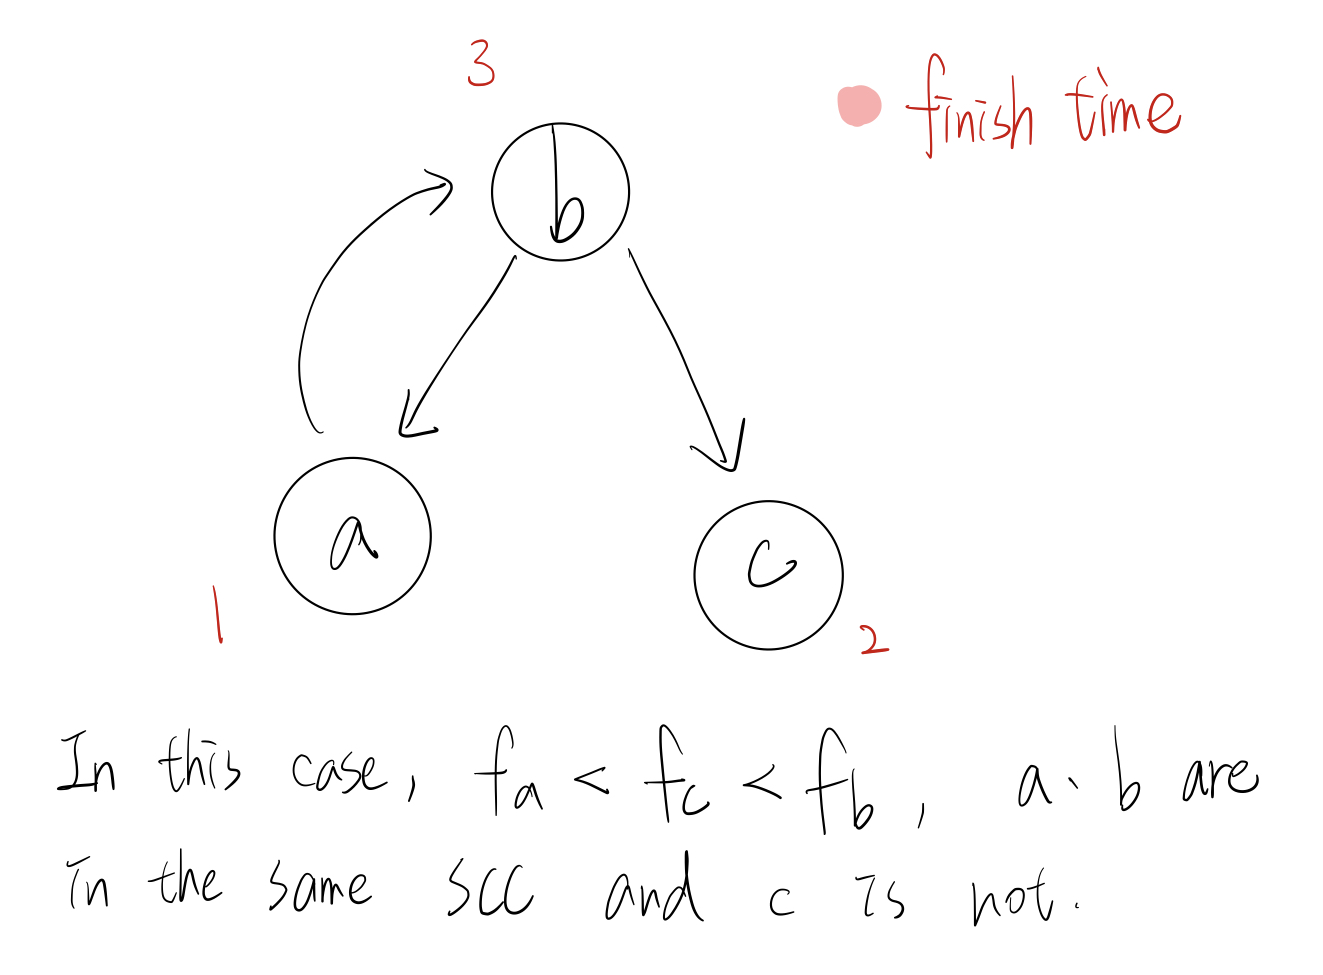 3
finish time
b
a
c
1
2
In this case, fa < fc < fb, a、b are
in the same SCC and c is not.